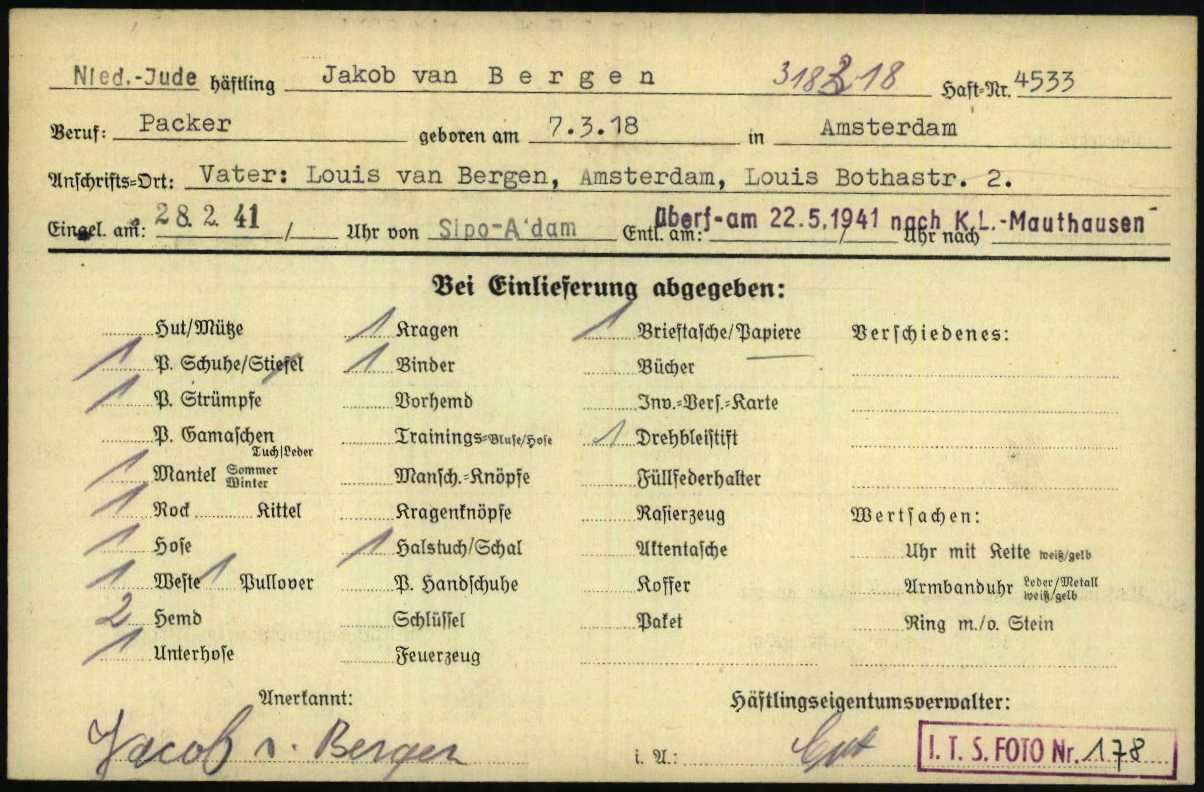 Nied.-Jude häftling Jakob van Bergen 318 18 Haft-Nr. 4533
Beruf: Packer geboren am 7.3.18 in Amsterdam
Anschrifts-Ort: Vater: Louis van Bergen, Amsterdam, Louis Bothastr. 2.
Eingel. am: 28.2.41 / Uhr von Sipo-A'dam Entl. am: überf-am 22.5.1941 nach K.L.-Mauthausen / Uhr nach
Bei Einlieferung abgegeben:
Hut/Mütze 1 Kragen 1 Brieftasche/Papiere Verschiedenes:
1 P. Schuhe/Stiefel 1 Binder Bücher
1 P. Strümpfe Vorhemd Inv.-Vers.-Karte
P. Gamaschen Tuch/Leder Trainings-Bluse/Hose 1 Drehbleistift
1 Mantel Sommer Winter Mansch.-Knöpfe Füllfederhalter
1 Rock Kittel Kragenknöpfe Rasierzeug Wertsachen:
1 Hose 1 Halstuch/Schal Aktentasche Uhr mit Kette weiß/gelb
1 Weste 1 Pullover P. Handschuhe Koffer Armbanduhr Leder/Metall weiß/gelb
2 Hemd Schlüssel Paket Ring m./o. Stein
1 Unterhose Feuerzeug
Anerkannt: Häftlingseigentumsverwalter:
Jacob v. Bergen i. A.: I.T.S. FOTO Nr. 178